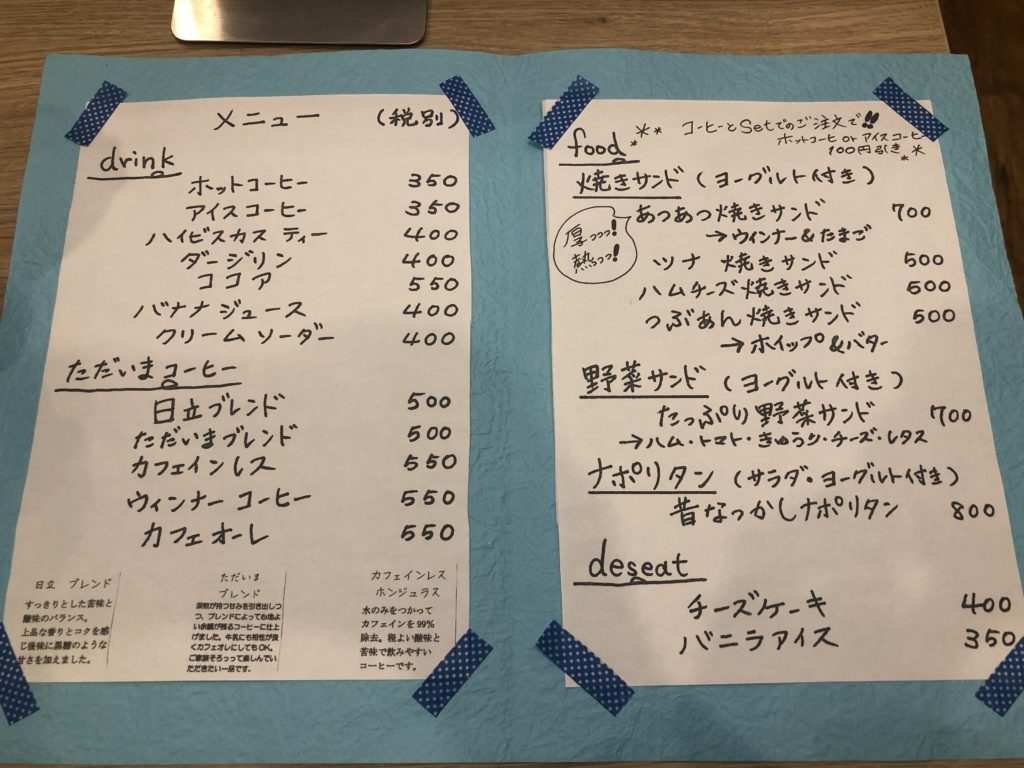 メニュー (税別)
drink
ホットコーヒー 350
アイスコーヒー 350
ハイビスカス ティー 400
ダージリン 400
ココア 550
バナナジュース 400
クリームソーダー 400
ただいまコーヒー
日立ブレンド 500
ただいまブレンド 500
カフェインレス 550
ウィンナーコーヒー 550
カフェオーレ 550
日立 ブレンド
すっきりとした苦味と
酸味のバランス。
上品な香りとコクを感
じ後味に黒糖のような
甘さを加えました。
ただいま
ブレンド
深煎が持つ甘みを引き出しつ
つ、ブレンドによっても地よ
い余韻が残るコーヒーに仕上
げました。牛乳にも相性が良
くカフェオレにしてもOK。
ご家族そろって楽しんでい
ただきたい一品です。
カフェインレス
ホンジュラス
水のみをつかって
カフェインを99%
除去。程よい酸味と
苦味で飲みやすい
コーヒーです。
food
コーヒーとSetでのご注文で!!
ホットコーヒ or アイスコーヒ
100円引き
焼きサンド (ヨーグルト付き)
厚っっっ!
熱っっっ!
あつあつ焼きサンド 700
→ウィンナー&たまご
ツナ 焼きサンド 500
ハムチーズ焼きサンド 500
つぶあん焼きサンド 500
→ホイップ&バター
野菜サンド (ヨーグルト付き)
たっぷり野菜サンド 700
→ハム・トマト・きゅうり・チーズ・レタス
ナポリタン (サラダ・ヨーグルト付き)
昔なつかしナポリタン 800
deseat
チーズケーキ 400
バニラアイス 350